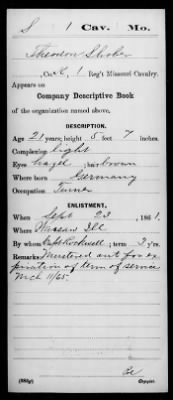 S 1 Cav. Mo.
Theodore Shober
Co. C, 1 Reg't Missouri Cavalry.
Appears on
Company Descriptive Book
of the organization named above.
DESCRIPTION.
Age 21 years; height 5 feet 7 inches.
Complexion light
Eyes hazel; hair brown
Where born Germany
Occupation Tinner
ENLISTMENT.
When Sept 23, 1861.
Where Warsaw Ill
By whom Capt Rockwell; term 3 y'rs.
Remarks: Mustered out for ex
piration of term of service
Mch 11/65.
(383g) Copyist.